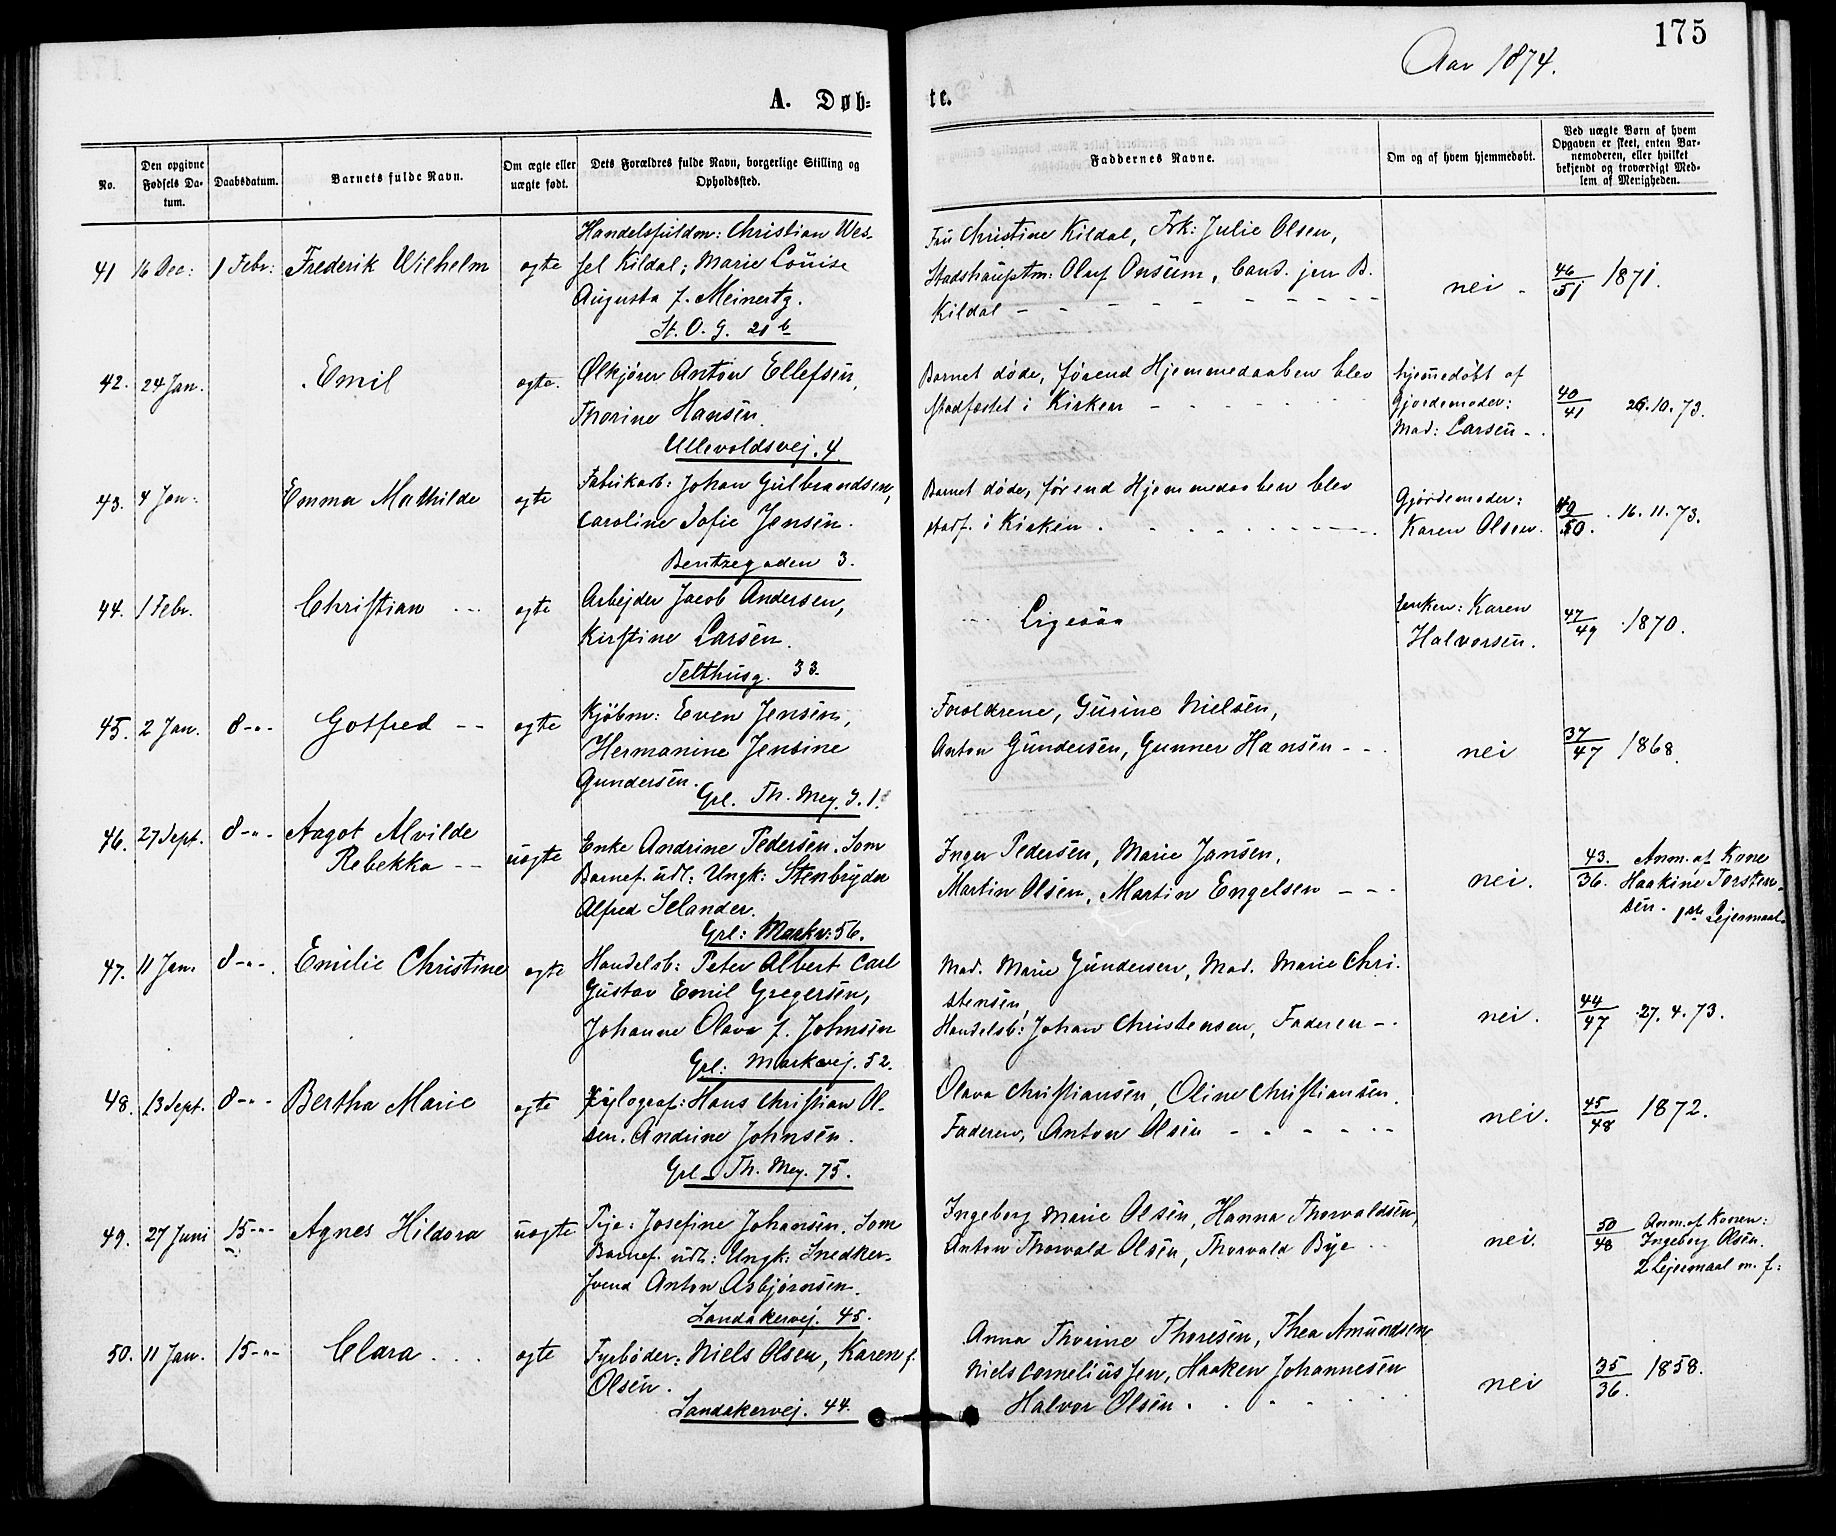 175
Aar 1874.
A. Døb-
te.
No.
Den opgivne Fødsels Da-tum.
Daabsdatum.
Barnets fulde Navn.
Om ægte eller uægte født.
Dets Forældres fulde Navn, borgerlige Stilling og Opholdssted.
Faddernes Navne.
Om og af hvem hjemmedøbt.
Ved uægte Børn af hvem Opgaven er skeet, enten Bar-nemoderen, eller hvilket bekjendt og troværdigt Med-lem af Menigheden.
41 16 Dec: 1 Febr: Frederik Wilhelm ægte
Handelsfuldm: Christian Wes-
sel Kildal; Marie Louise
Augusta f. Meinertz.
St. O. G. 21 b
Fru Christine Kildal, Frk: Julie Olsen,
Stadshauptm: Oluf Onsum, Cand. jur B.
Kildal
nei
46/51 1871.
42. 24 Jan. Emil ægte.
Ølkjører Anton Ellefsen,
Thorine Hansen.
Ullevoldsvej. 4.
Barnet døde, førend Hjemmedaaben blev
stadfæstet i Kirken
hjemmedøbt af
Gjordemoder:
Mad: Larsen
40/41 26.10.73.
43. 4 Jan: Emma Mathilde ægte
Fabrikarb: Johan Gulbrandsen,
Caroline Sofie Jensen.
Bentzegaden 3.
Barnet døde, førend Hjemmedaaben blev
stadf. i Kirken.
Gjordemoder:
Karen Olsen.
49/50. 16.11.73.
44. 1 Febr. Christian ægte
Arbejder Jacob Andersen,
Kirstine Larsen.
Telthusg. 33.
Ligesaa
Enken: Karen
Halvorsen.
47/49 1870.
45. 2 Jan. 8-"- Gotfred ægte
Kjøbm: Even Jensen,
Hermanine Jensine
Gundersen.
Grl. Th. Mey. G. 1.
Forældrene, Gurine Nielsen,
Anton Gundersen, Gunner Hansen
nei
37/47 1868.
46. 27 Sept. 8-"- Aagot Alvilde
Rebekka uægte
Enke Andrine Pedersen. Som
Barnef. udl: Ungk: Stenbryder
Alfred Selander.
Grl: Markv: 56.
Inger Pedersen, Marie Jansen,
Martin Olsen, Martin Engelsen
nei.
43./36. Anm. af Kone
Haakine Torsten-
sen. 1ste Lejermaal.
47. 11 Jan. 8-"- Emilie Christine ægte
Handelsb: Peter Albert Carl
Gustav Emil Gregersen,
Johanne Olava f. Johnsen
Grl: Markvej. 52.
Mad. Marie Gundersen, Mad. Marie Chri-
stensen,
Handelsb: Johan Christensen, Faderen
nei.
44/47 27.4.73.
48. 13 Sept. 8-"- Bertha Marie ægte
Xylograf: Hans Christian Ol-
sen. Andrine Johnsen.
Grl. Th. Mey. 75.
Olava Christiansen, Oline Christiansen.
Faderen, Anton Olsen
nei.
45/48 1872.
49. 27 Juni 15-"- Agnes Hildora uægte
Pige: Josefine Johansen. Som
Barnef. udl: Ungk: Snedker-
svend Anton Asbjørnsen.
Sandakervej. 45.
Ingeborg Marie Olsen, Hanna Thorvaldsen,
Anton Thorvald Olsen, Thorvald Bye
nei.
50/48 Anm. af Konen:
Ingeborg Olsen.
2 Lejermaal m. f:
50. 11 Jan. 15-"- Clara ægte
Fyrbøder: Niels Olsen, Karen f.
Olsen.
Sandakervej. 44.
Anna Thorine Thoresen, Thea Amundsen
Niels Cornelius Jen, Haaken Johannesen
Halvor Olsen.
nei
35/36. 1858.